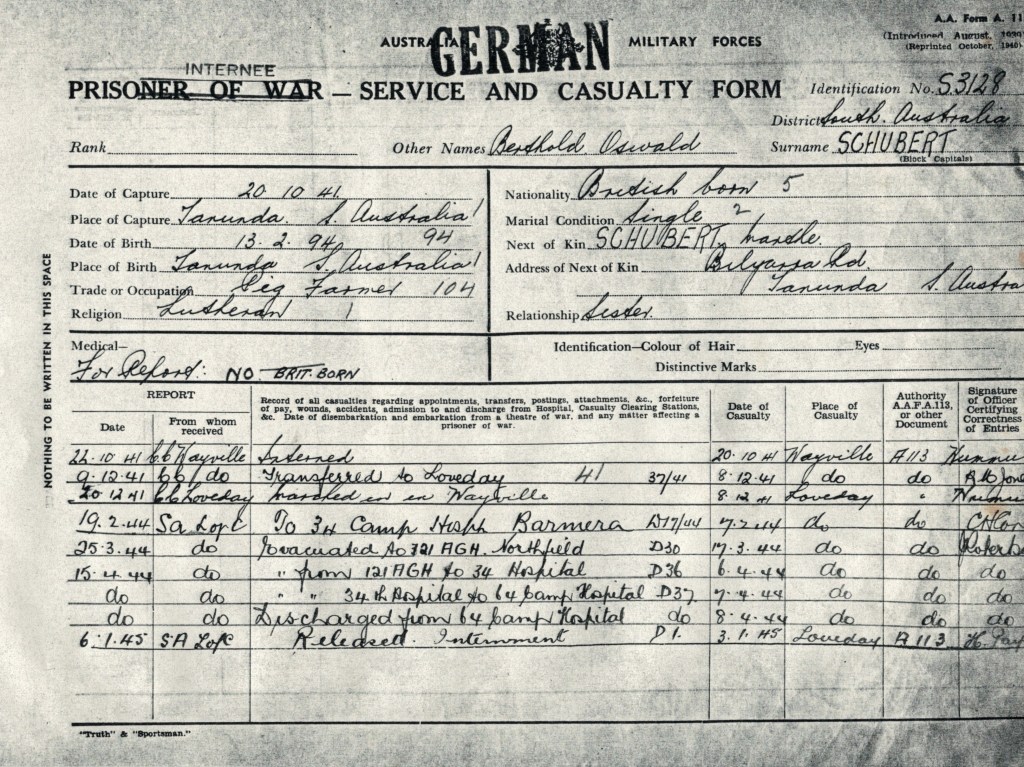 A.A. Form A. 11
(Introduced, August, 1939
(Reprinted October, 1940)
AUSTRALIAN GERMAN MILITARY FORCES
INTERNEE
PRISONER OF WAR — SERVICE AND CASUALTY FORM Identification No. S3128
District South. Australia
Rank Other Names Berthold Oswald Surname SCHUBERT
(Block Capitals)
Date of Capture 20 10 41.
Place of Capture Tanunda. S. Australia 1
Date of Birth 13. 2. 94 94
Place of Birth Tanunda S. Australia 1
Trade or Occupation Pig Farmer 104
Religion Lutheran 1
Nationality British born 5
Marital Condition Single 2
Next of Kin SCHUBERT,
Address of Next of Kin Bilyarra Rd.
Tanunda S. Austra
Relationship Sister.
NOTHING TO BE WRITTEN IN THIS SPACE
Medical—
For Report: NO - BRIT. BORN
Identification—Colour of Hair Eyes
Distinctive Marks
REPORT
Date
From whom received
Record of all casualties regarding appointments, transfers, postings, attachments, &c., forfeiture
of pay, wounds, accidents, admission to and discharge from Hospital, Casualty Clearing Stations,
&c. Date of disembarkation and embarkation from a theatre of war, and any matter affecting a
prisoner of war.
Date of Casualty
Place of Casualty
Authority A.A.F.A.113, or other Document
Signature of Officer Certifying Correctness of Entries
22.10 41 CC Wayville Interned 20.10 41 Wayville A113
9.12.41 CC do Transferred to Loveday 41 37/41 8.12.41 do do
20 12 41 CC Loveday Marched in ex Wayville 8.12.41 Loveday "
19.2.44 SA To 34 Camp Hosp Barmera D17/44 7.2.44 do do
25.3.44 do Evacuated to 121 AGH. Northfield D30 17.3.44 do do Roberts
15.4.44 do " from 121 AGH to 34 Hospital D36 6.4.44 do do do
do do " " 34th Hospital to 64 Camp Hospital D37 7.4.44 do do do
do do Discharged from 64 Camp Hospital do 8.4.44 do do do
6.1.45 SA Released. Internment D1. 3.1.45 Loveday A113
"Truth" & "Sportsman."